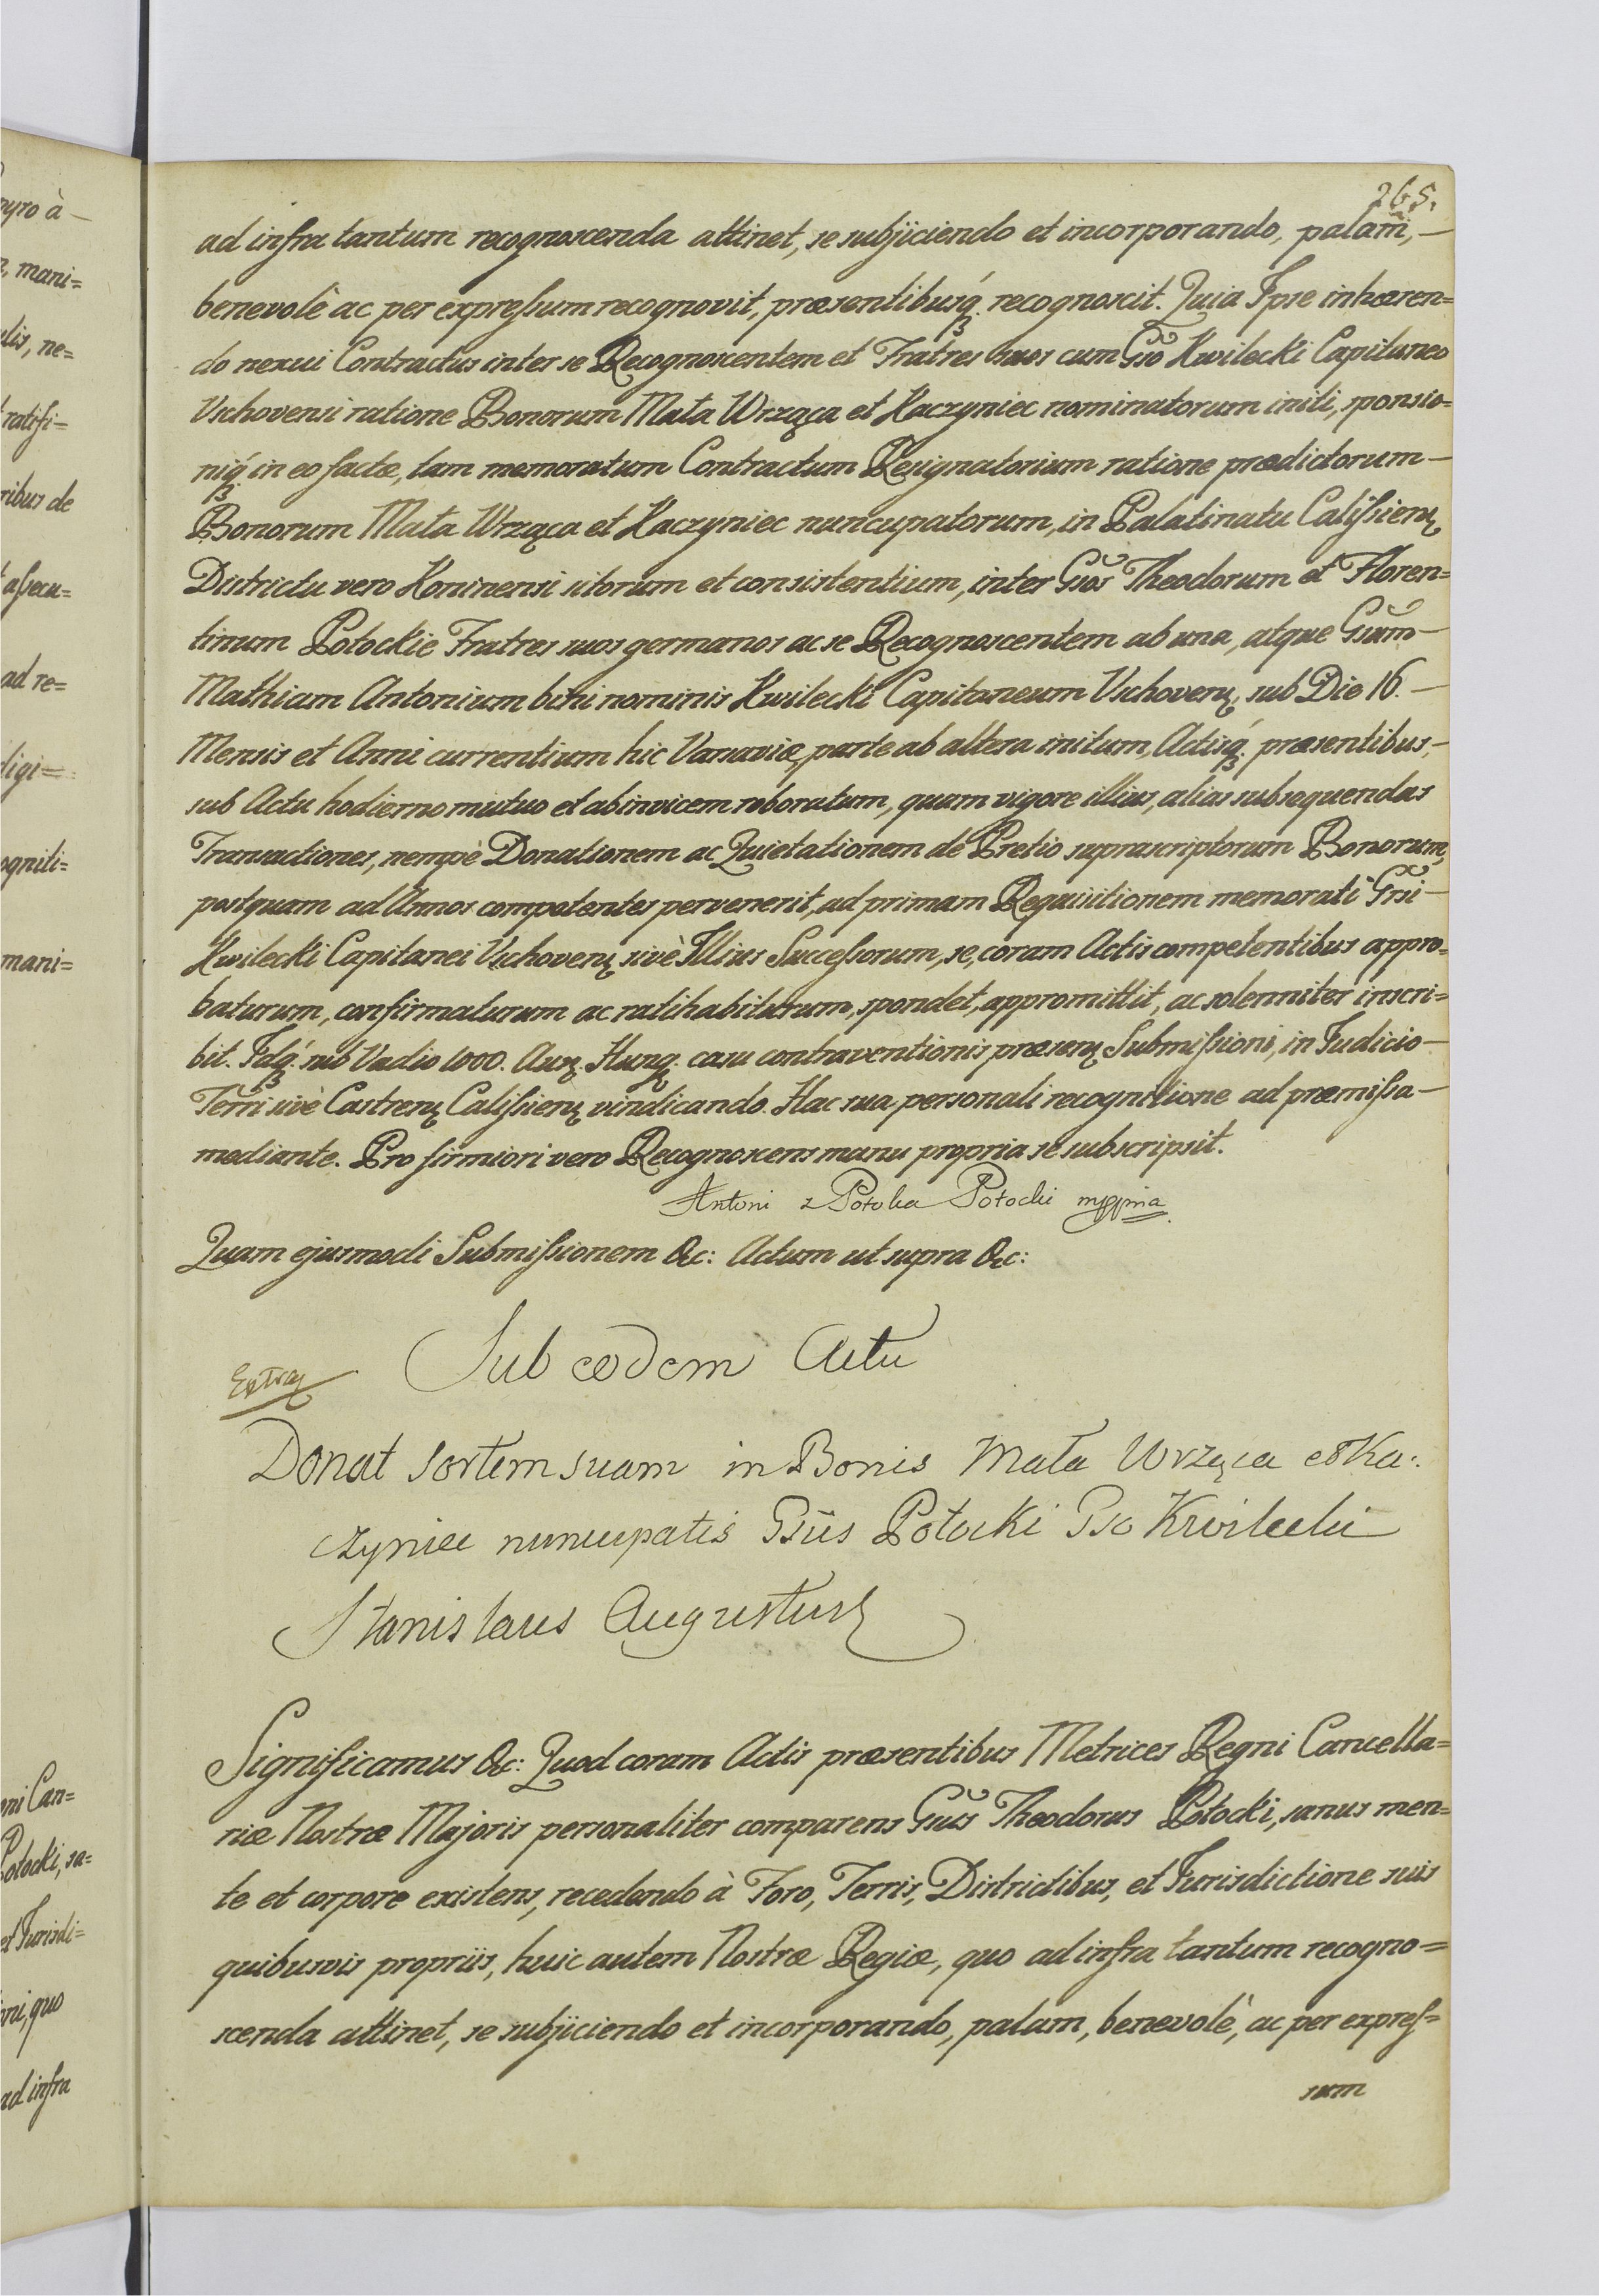 265.
ad infra tantum recognoscenda attinet, se subjiciendo et incorporando, palam̃,—
benevolè ac per expreſsum recognovit, præsentibusq́ꝫ recognoscit. Quia Ipse inhæren=
do nexui Contractus inter se Recognoscentem et Fratres suos cum Gso Kwilecki Capitaneo
Vschovensi ratione Bonorum Mała Wrząca et Kaczyniec nominatorum initi, sponsio=
niq́ꝫ in eo factæ, tam memoratum Contractum Resignatorium ratione prædictorum—
Bonorum Mała Wrząca et Kaczyniec nuncupatorum, in Palatinatu Caliſsienꝫ
Districtu vero Koninensi sitorum et consistentium, inter Gsos Theodorum et Floren=
tinum Potockie Fratres suos germanos ac se Recognoscentem ab una, atque Gsum—
Mathiam Antonium bini nominis Kwilecki Capitaneum Vschovenꝫ, sub Die 16.—
Mensis et Anni currentium hic Varsaviæ, parte ab altera initum, Actisq́ꝫ præsentibus,—
sub Actu hodierno mutuo et abinvicem roboratum, quam vigore illius, alias subsequendas
Transactiones, nempè Donationem ac Quietationem de Pretio suprascriptorum Bonorum,
postquam ad Annos competentes pervenerit, ad primam Requisitionem memorati Gsi—
Kwilecki Capitanei Vschovenꝫ sivè Illius Succeſsorum, se, coram Actis competentibus appro=
baturum, confirmaturum ac ratihabiturum, spondet, appromittit, ac solenniter inscri=
bit. Idq́ꝫ sub Vadio 1000. Aurꝫ Hungꝫ. casu contraventionis præsenꝫ Submiſsioni, in Judicio—
Terr̃i sivè Castrenꝫ Caliſsienꝫ vindicando. Hac sua personali recognitione ad præmiſsa—
mediante. Pro firmiori vero Recognoscens manu propria se subscripsit.
Antoni z Potoka Potocki mppria
Quam ejusmodi Submiſsionem &c: Actum ut supra &c:
Sub eodem Actu
Extraꝫ
Donat sortem suam in Bonis Mała Wrząca et Ka:
czyniec nuncupatis Gsus Potocki Gso Kwilecki
Stanislaus Augustus
Significamus &c: Quod coram Actis præsentibus Metrices Regni Cancella=
riæ Nostræ Majoris personaliter comparens Gsus Theodorus Potocki, sanus men=
te et corpore existens, recedendo à Foro, Terris, Districtibus, et Jurisdictione suis
quibusvis propriis, huic autem Nostræ Regiæ, quo ad infra tantum recogno=
scenda attinet, se subjiciendo et incorporando, palam, benevolè, ac per expreſ=
sum